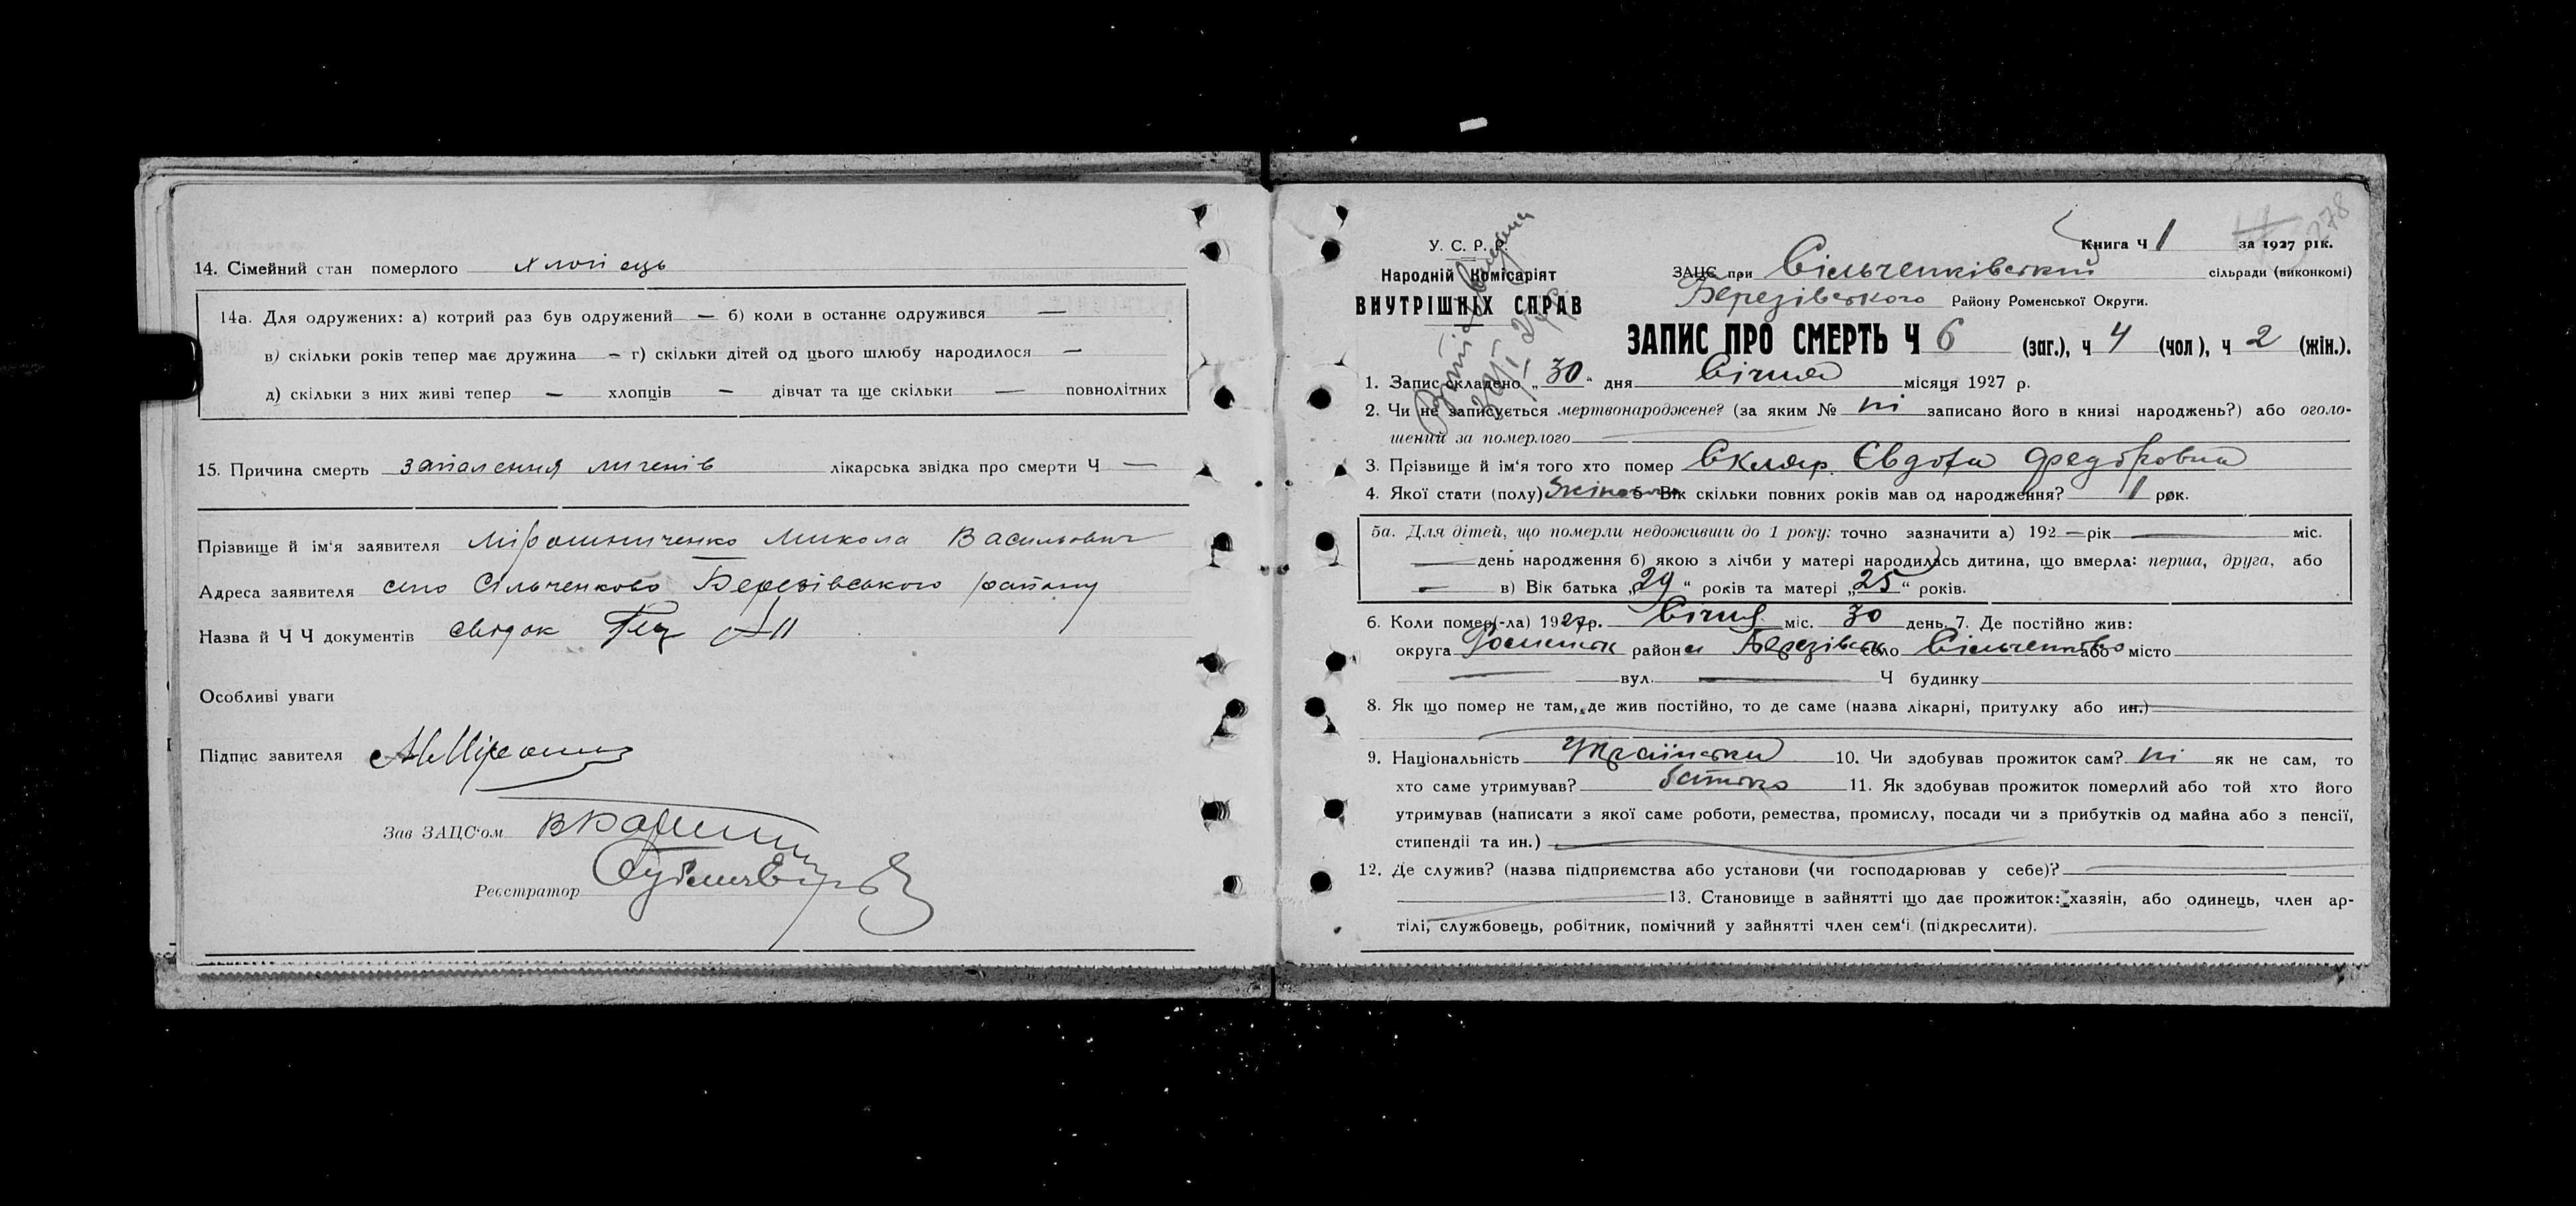 14. Сімейний стан померлого хлопець
14а. Для одружених: а) котрий раз був одружений — б) коли в останнє одружився —
в) скільки років тепер має дружина — г) скільки дітей од цього шлюбу народилося —
д) скільки з них живі тепер — хлопців — дівчат та ще скільки — повнолітних
15. Причина смерть запалення лигенів лікарська звідка про смерти Ч —
Прізвище й ім'я заявителя Мірошниченко Микола Васильович
Адреса заявителя село Сільченково Березівського району
Назва й Ч Ч документів свідок
Особливі уваги
Підпис завителя
Зав ЗАЦС'ом
Реєстратор
278
У. С. Р. Р.
Народній Комісаріят
ВНУТРІШНІХ СПРАВ
Книга Ч 1 за 1927 рік.
ЗАЦС при Сільченківський сільради (виконкомі)
Березівського Району Роменської Округи.
ЗАПИС ПРО СМЕРТЬ Ч 6 (заг.), ч 4 (чол), ч 2 (жін.).
1. Запис складено „30" дня Січня місяця 1927 р.
2. Чи не записується мертвонароджене? (за яким № ні записано його в книзі народжень?) або оголо-
шений за померлого
3. Прізвище й ім'я того хто помер Скляр Євдокія Федоровна
4. Якої стати (полу) 5 Вік скільки повних років мав од народження? 1 рок.
5а. Для дітей, що померли недоживши до 1 року: точно зазначити а) 192 — рік — міс.
— день народження б) якою з лічби у матері народилась дитина, що вмерла: перша, друга, або
— в) Вік батька „29" років та матері „25" років.
6. Коли помер(-ла) 1927р. Січня міс. 30 день. 7. Де постійно жив:
округа Роменськ район Березівськ село Сільченково або місто
— вул. — Ч будинку
8. Як що помер не там, де жив постійно, то де саме (назва лікарні, притулку або ин.)
9. Національність Українська 10. Чи здобував прожиток сам? ні як не сам, то
хто саме утримував? батько 11. Як здобував прожиток померлий або той хто його
утримував (написати з якої саме роботи, ремества, промислу, посади чи з прибутків од майна або з пенсії,
стипендії та ин.)
12. Де служив? (назва підприємства або установи (чи господарював у себе)?
13. Становище в зайнятті що дає прожиток: хазяін, або одинець, член ар-
тілі, службовець, робітник, помічний у зайнятті член сем'ї (підкреслити).